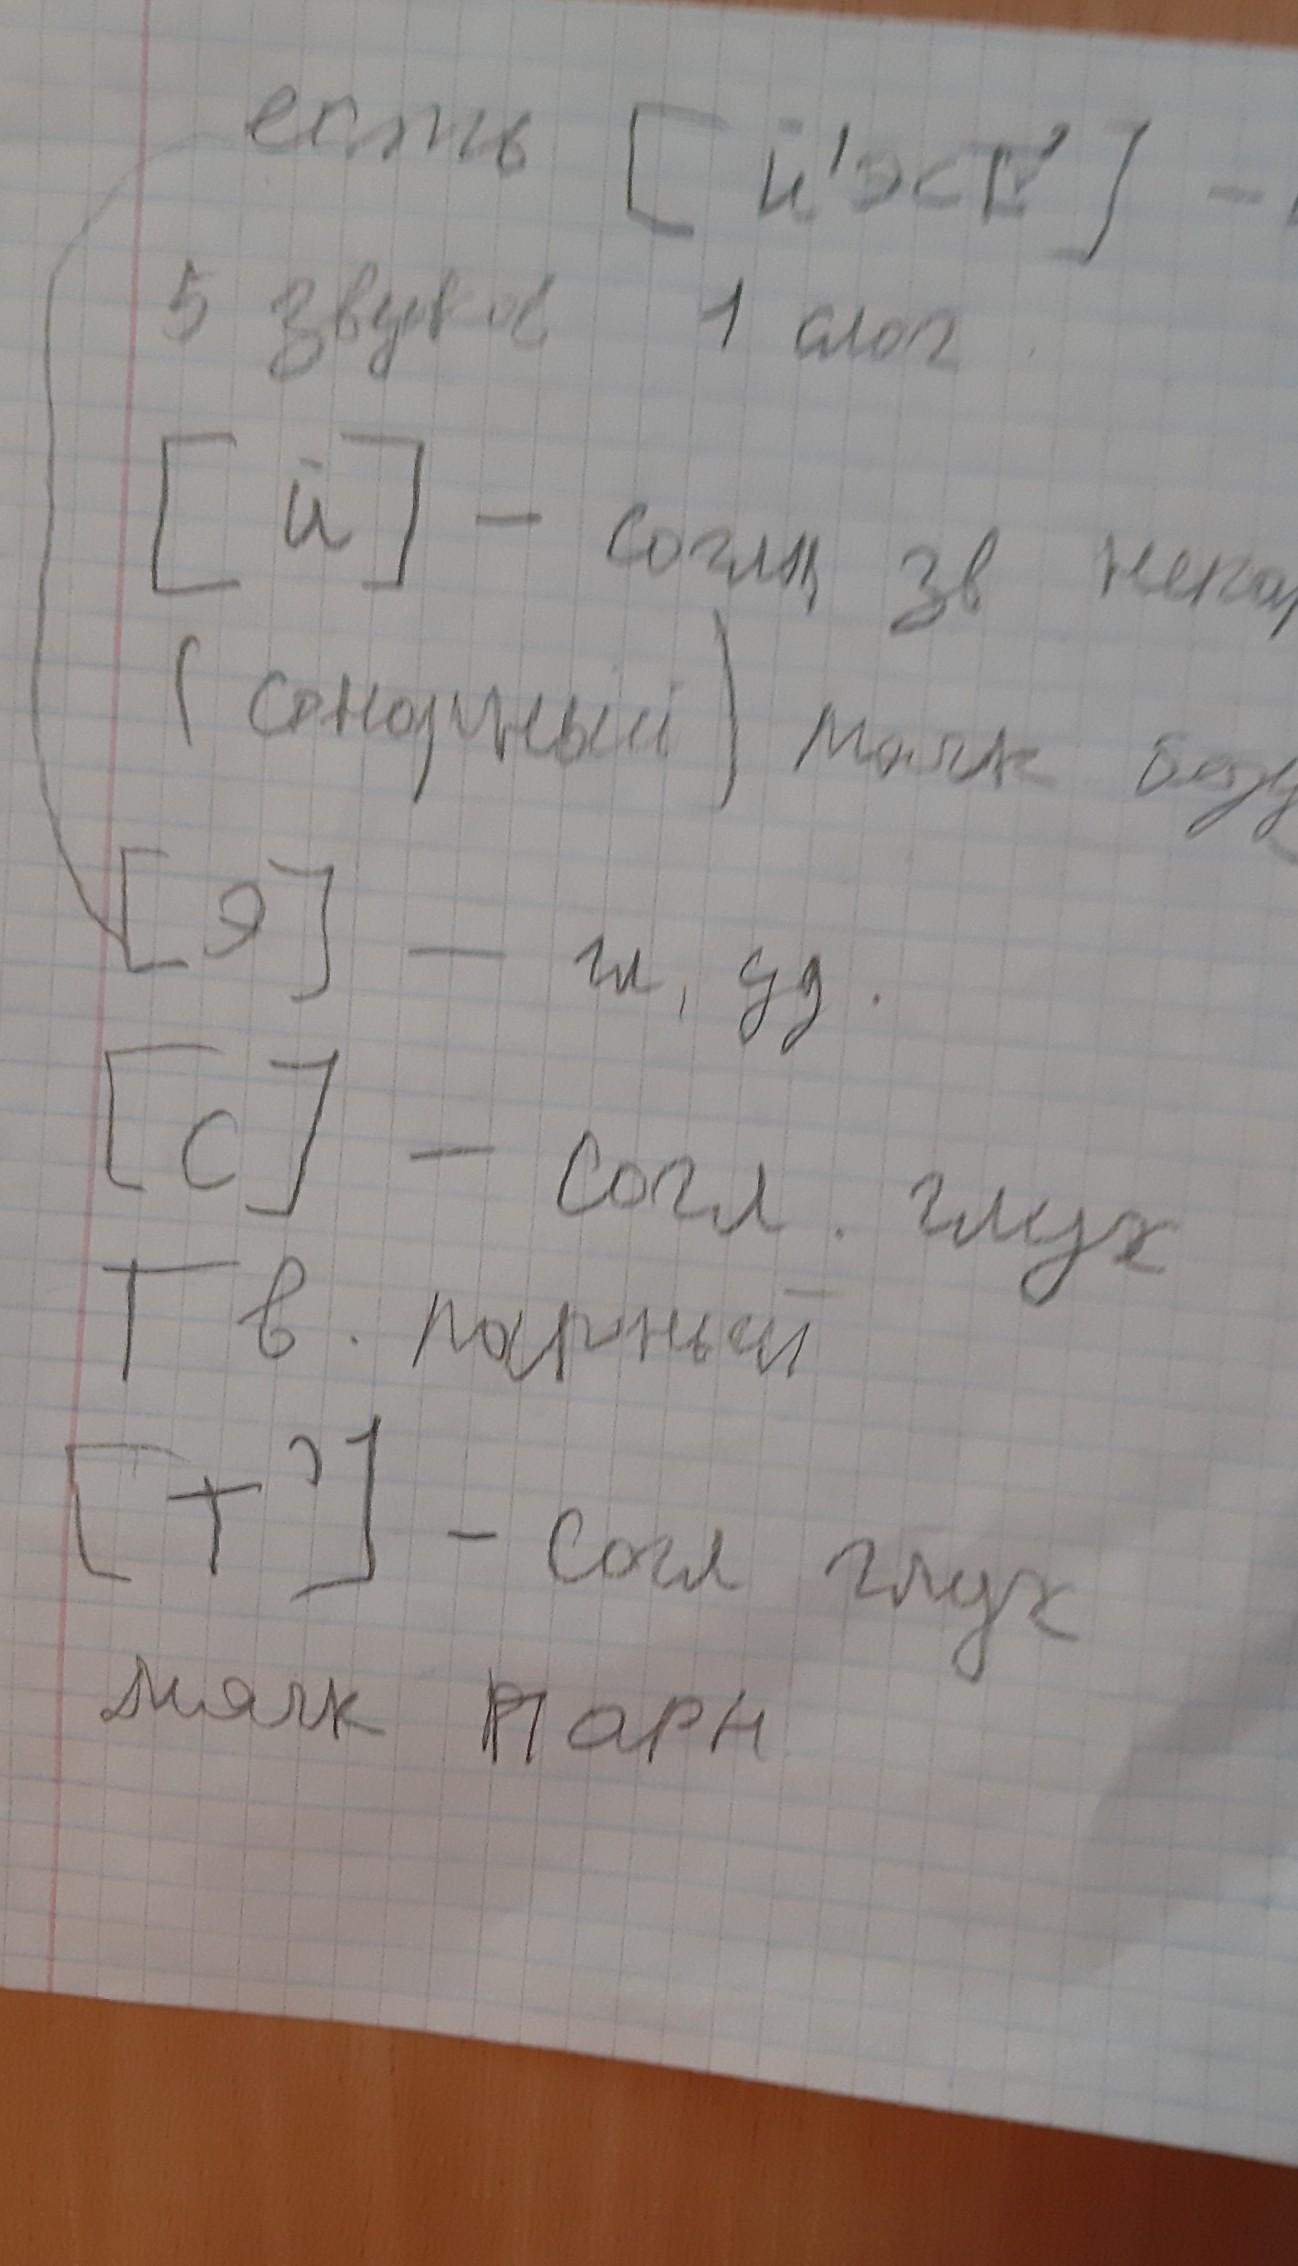 есть [й'эст'] -
5 звуков 1 слог
[й] - согл зв непар
(сонорный) мягк
[э] - гл, уд.
[с] - согл. глух
Тв. парный
[т'] - согл глух
мягк парн